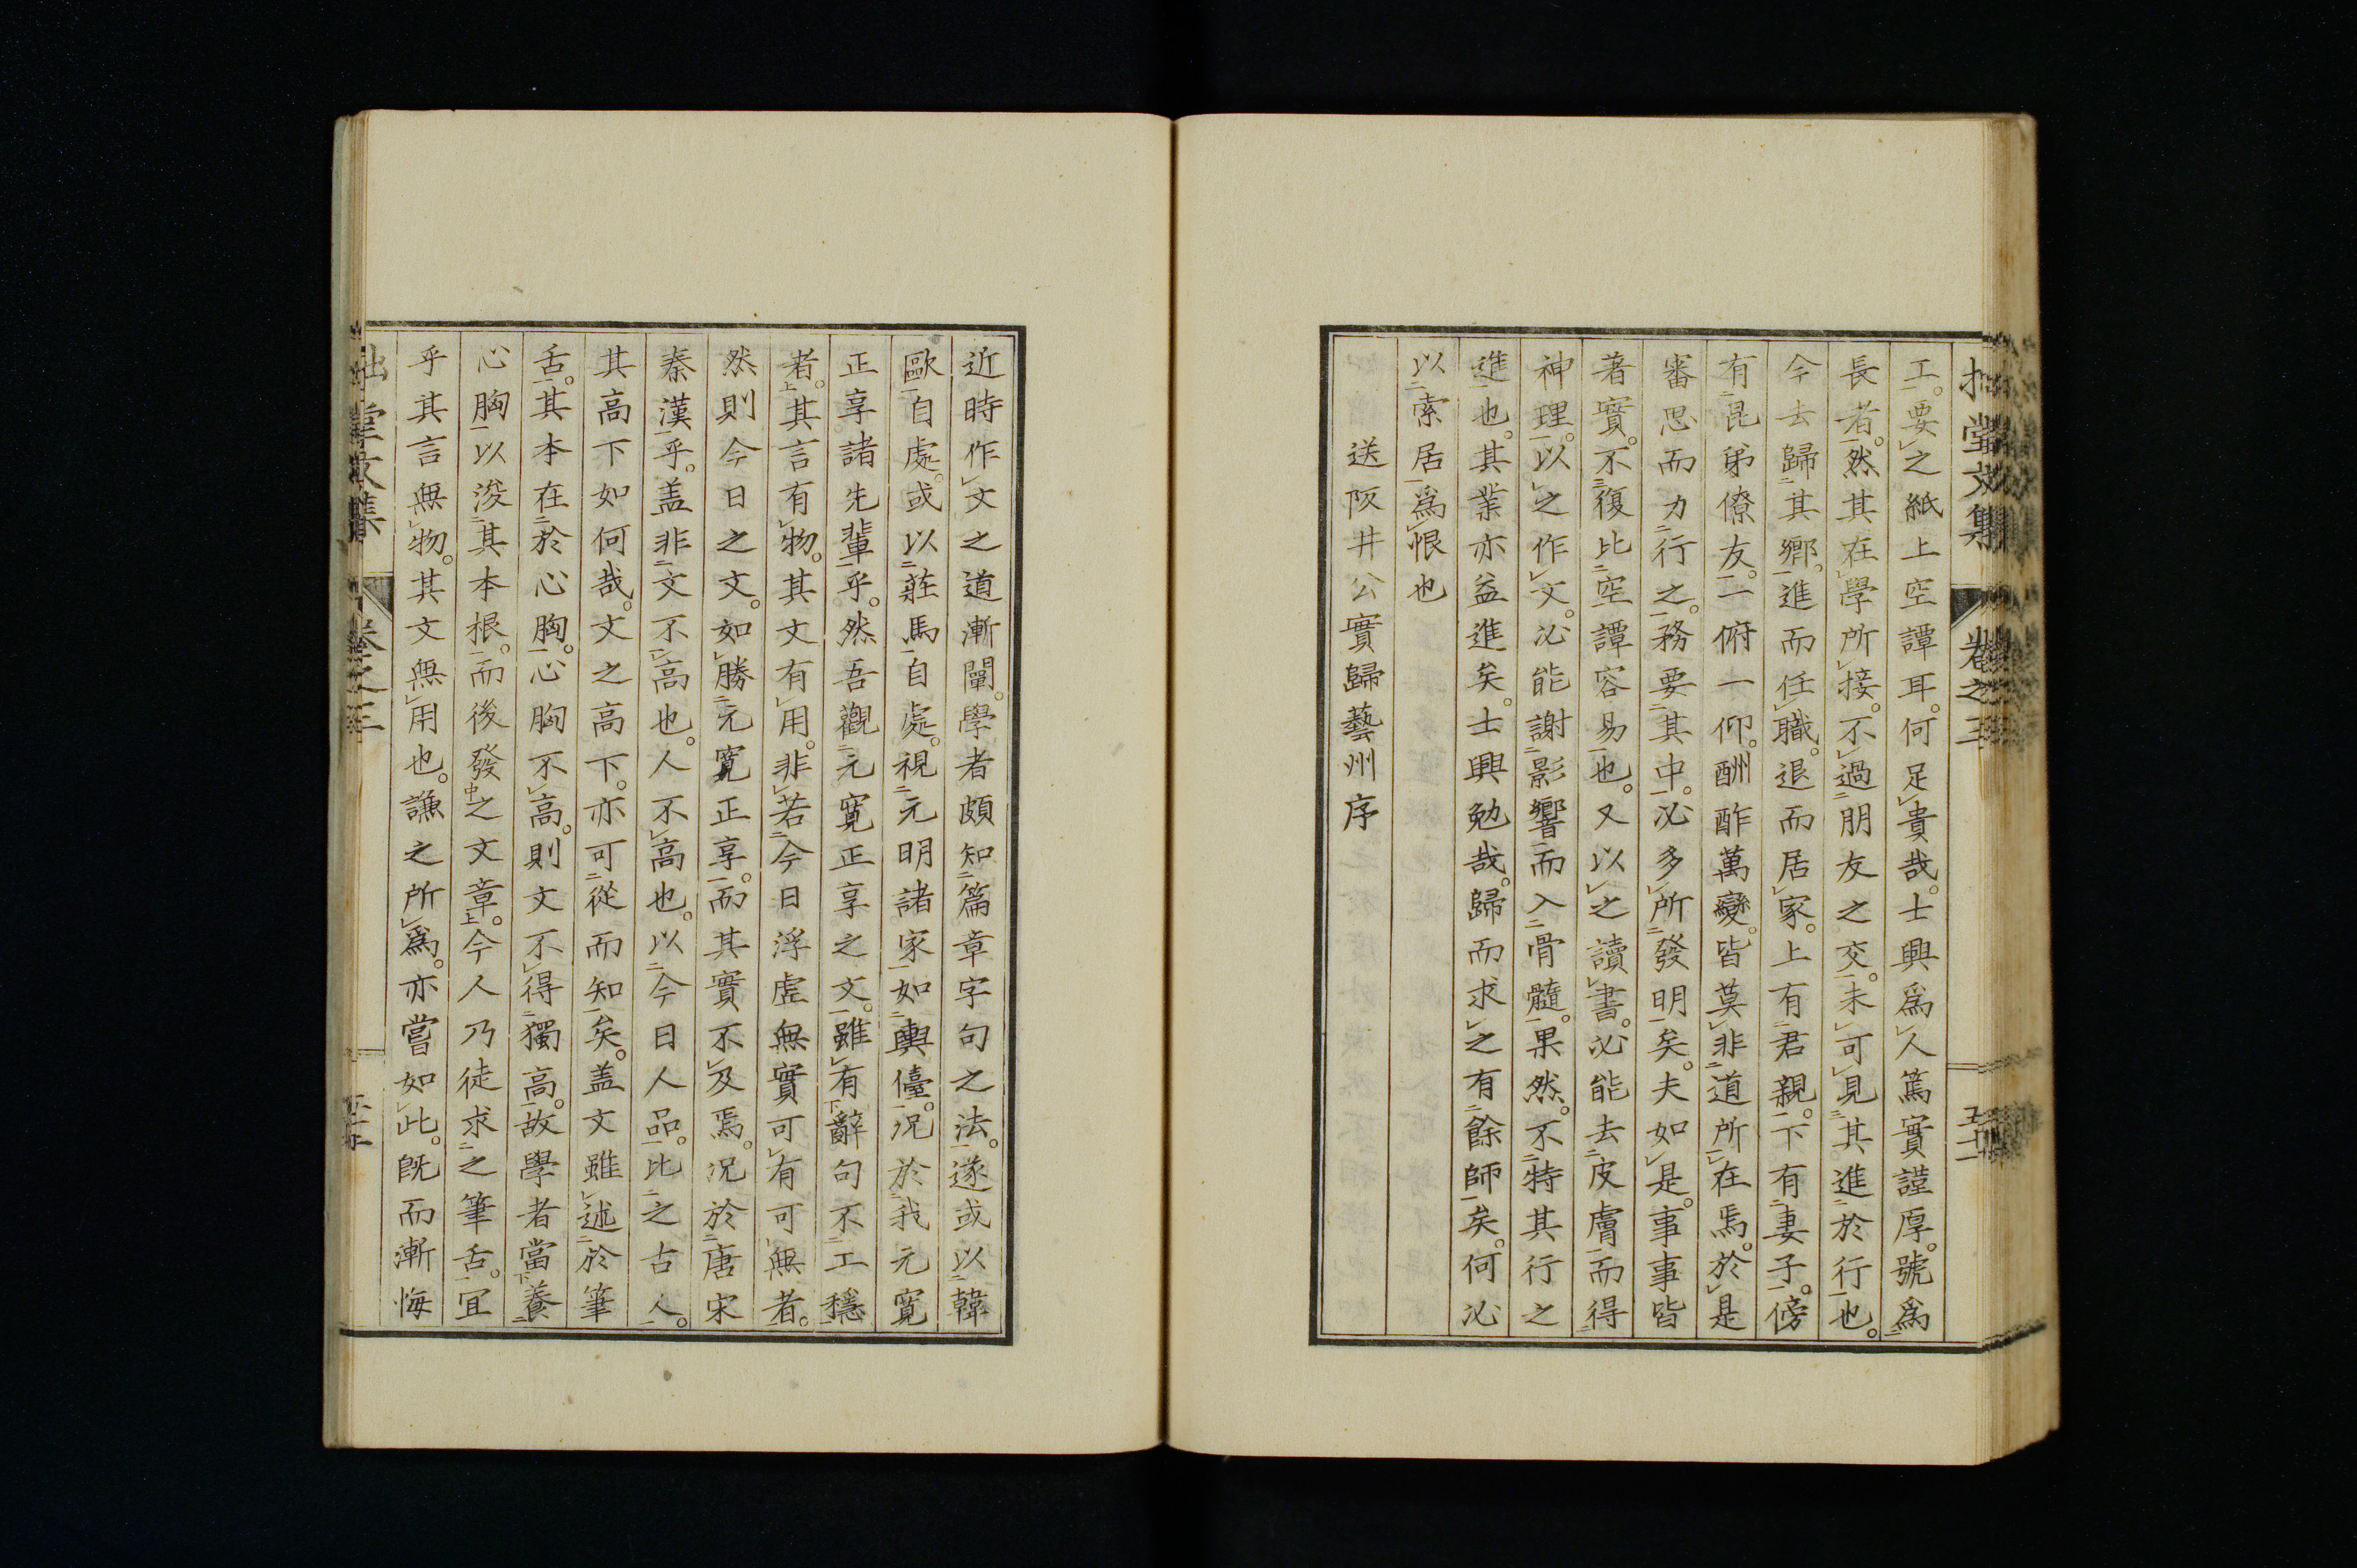 拙堂文集 卷之三 五十二
工。要之紙上空譚耳。何足貴哉。士興爲人篤實謹厚。號爲
長者。然其在學所接。不過朋友之交。未可見其進於行也。
今去歸其鄉。進而任職。退而居家。上有君親。下有妻子。傍
有昆弟僚友。一俯一仰。酬酢萬變。皆莫非道所在焉。於是
審思而力行之。務要其中。必多所發明矣。夫如是。事事皆
著實。不復比空譚容易也。又以之讀書。必能去皮膚而得
神理。以之作文。必能謝影響而入骨髓。果然。不特其行之
進也。其業亦益進矣。士興勉哉。歸而求之有餘師矣。何必
以索居爲恨也
送阪井公實歸藝州序
近時作文之道漸闡。學者頗知篇章字句之法。遂或以韓
歐自處。或以莊馬自處。視元明諸家如輿儓。況於我元寬
正享諸先輩乎。然吾觀元寬正享之文。雖有辭句不工穩
者。其言有物。其文有用。非若今日浮虛無實可有可無者。
然則今日之文。如勝元寬正享。而其實不及焉。況於唐宋
秦漢乎。盖非文不高也。人不高也。以今日人品。比之古人。
其高下如何哉。文之高下。亦可從而知矣。盖文雖述於筆
舌。其本在於心胸。心胸不高。則文不得獨高。故學者當養
心胸以浚其本根。而後發之文章。今人乃徒求之筆舌。宜
乎其言無物。其文無用也。謙之所爲。亦嘗如此。既而漸悔
堂文集 卷之三